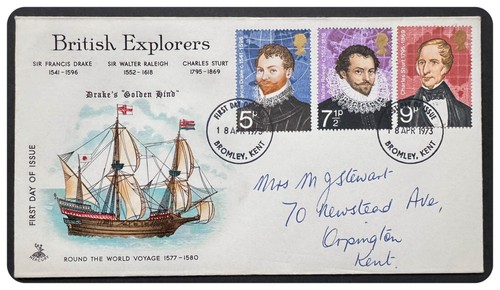 British Explorers
SIR FRANCIS DRAKE SIR WALTER RALEIGH CHARLES STURT
1541-1596 1552-1618 1795-1869
Drake's "Golden Hind"
FIRST DAY OF ISSUE
ROUND THE WORLD VOYAGE 1577-1580
5P
7½P
Charles Sturt 1795-1869
9P
FIRST DAY OF ISSUE
18 APR 1973
BROMLEY, KENT
FIRST DAY OF ISSUE
18 APR 1973
BROMLEY, KENT
Mrs M J Stewart
70 Newstead Ave,
Orpington
Kent.